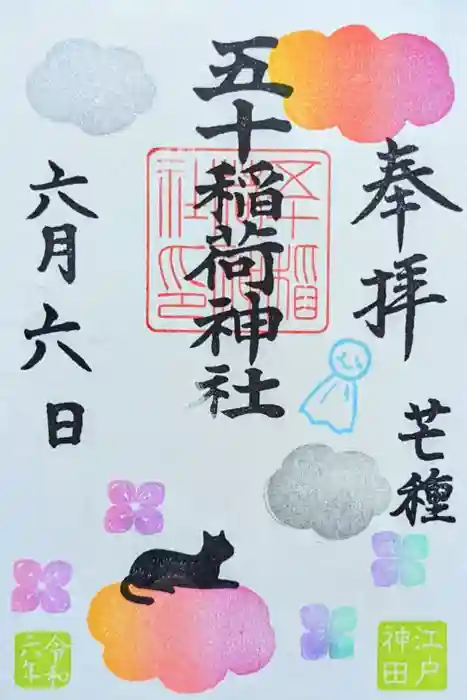 奉拝
芒種
五十稲荷神社
六月六日
江戸
神田
令和
六年